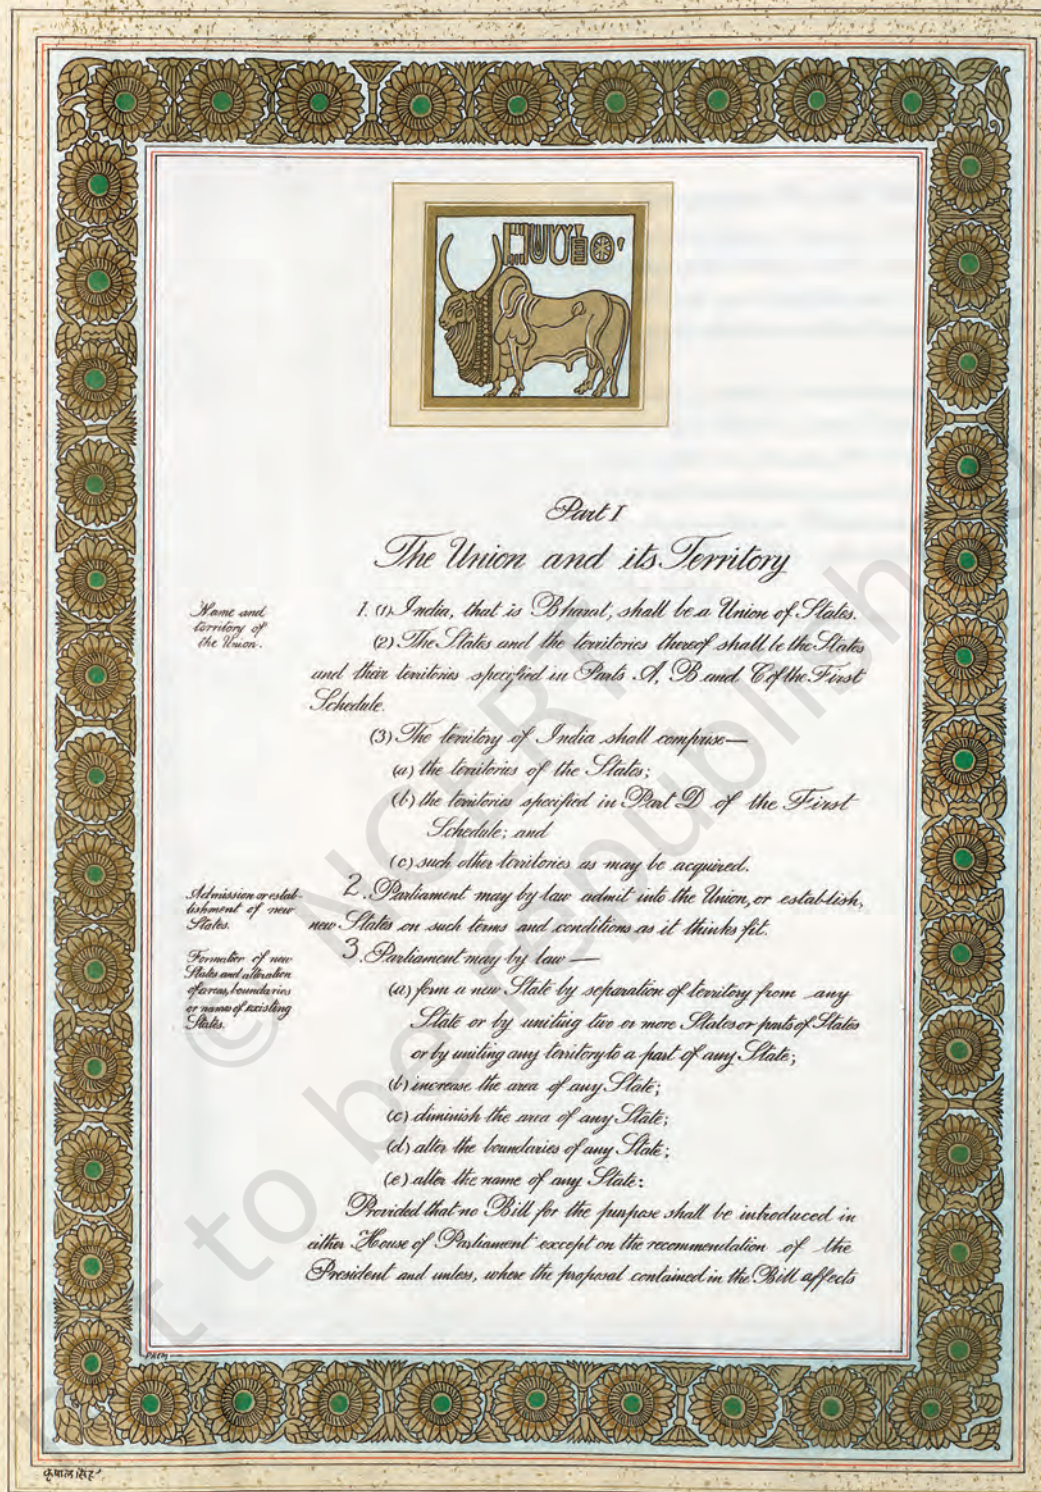 Part I
The Union and its Territory
Name and
territory of
the Union.
1. (1) India, that is Bharat, shall be a Union of States.
(2) The States and the territories thereof shall be the States
and their territories specified in Parts A, B and C of the First
Schedule.
(3) The territory of India shall comprise—
(a) the territories of the States;
(b) the territories specified in Part D of the First
Schedule; and
(c) such other territories as may be acquired.
Admission or estab-
lishment of new
States.
2. Parliament may by law admit into the Union, or establish,
new States on such terms and conditions as it thinks fit.
Formation of new
States and alteration
of areas, boundaries
or names of existing
States.
3. Parliament may by law —
(a) form a new State by separation of territory from any
State or by uniting two or more States or parts of States
or by uniting any territory to a part of any State;
(b) increase the area of any State;
(c) diminish the area of any State;
(d) alter the boundaries of any State;
(e) alter the name of any State:
Provided that no Bill for the purpose shall be introduced in
either House of Parliament except on the recommendation of the
President and unless, where the proposal contained in the Bill affects
कृपाल सिंह
© NCERT
to be republish